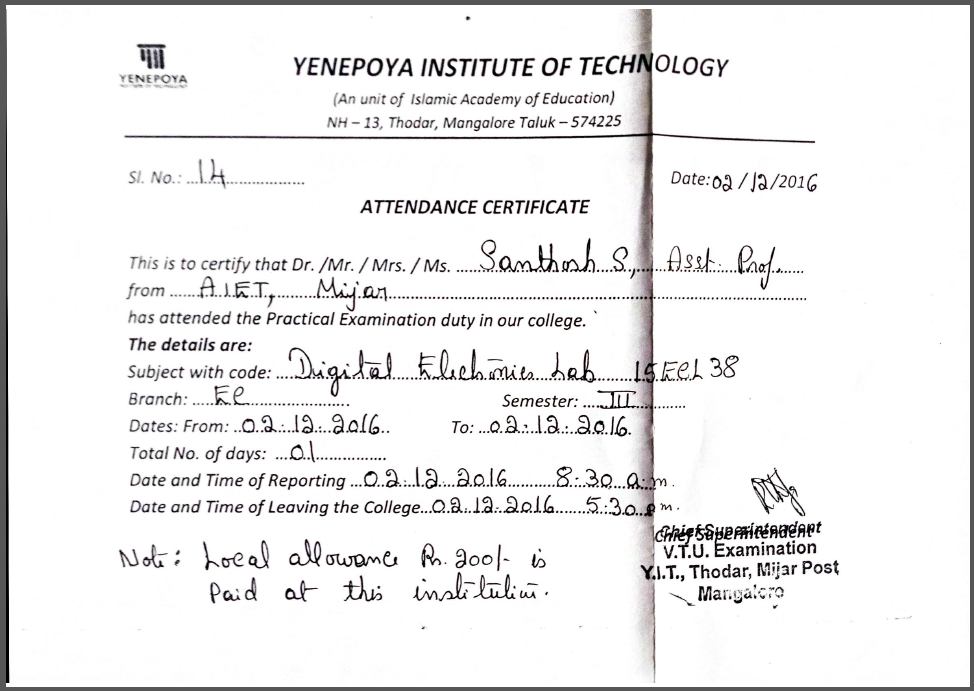 YENEPOYA
YENEPOYA INSTITUTE OF TECHNOLOGY
(An unit of Islamic Academy of Education)
NH – 13, Thodar, Mangalore Taluk – 574225
Sl. No.: ...14.................. Date: 02/12/2016
ATTENDANCE CERTIFICATE
This is to certify that Dr. /Mr. / Mrs. / Ms. ....Santhosh S., Asst. Prof.....
from .....AIET, Mijar.....
has attended the Practical Examination duty in our college.
The details are:
Subject with code: ...Digital Electronics Lab 15ECL38
Branch: ....EC.................... Semester: ...III.........
Dates: From: ..02.12.2016.. To: ...02.12.2016.
Total No. of days: ...01...............
Date and Time of Reporting ...02.12.2016 8.30 a.m.
Date and Time of Leaving the College...02.12.2016 5.30 p.m.
Note: Local allowance Rs. 200/- is
Paid at this institution.
Chief Superintendent
V.T.U. Examination
Y.I.T., Thodar, Mijar Post
Mangalore